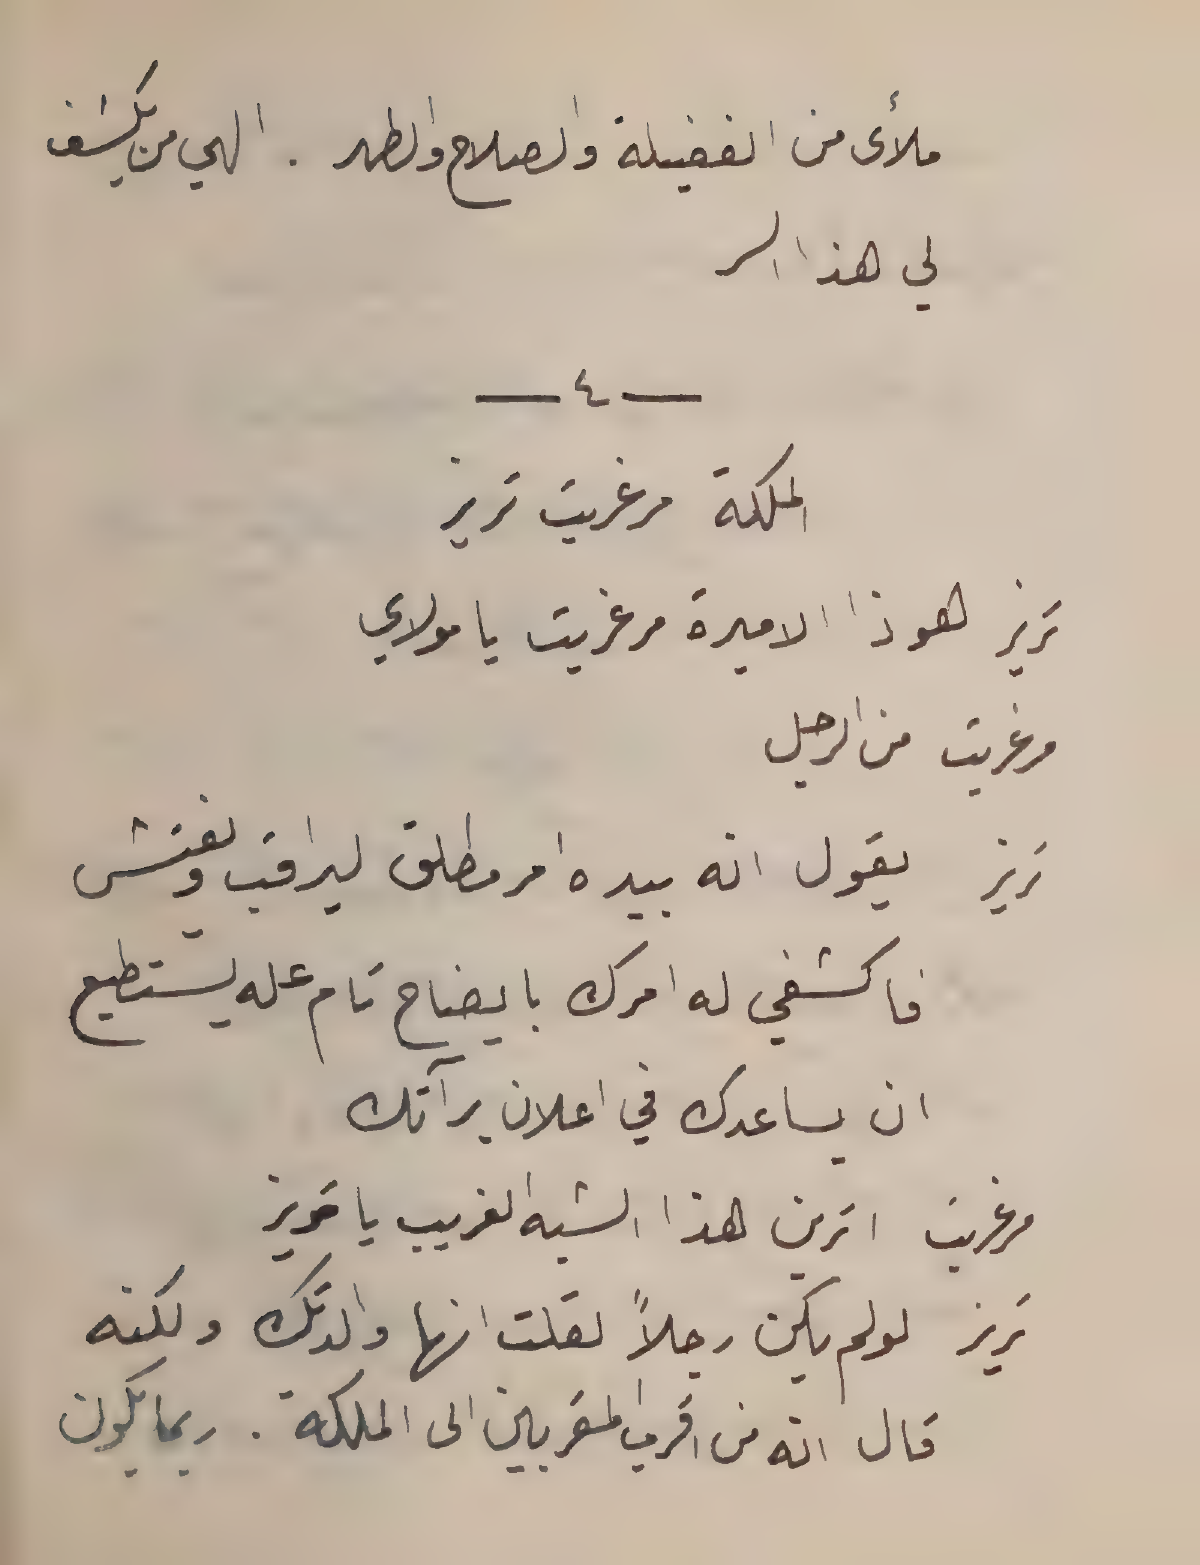 ملأى من الفضيلة والصلاح والطهر . الهي من يكشف
لي هذا السر
— ٤ —
الملكة مرغريت تريز
تريز هوذا الاميرة مرغريت يا مولاي
مرغريت من الرجل
تريز يقول انه بيده امر مطلق ليراقب ويفتش
فاكشفي له امرك بايضاح تام عله يستطيع
ان يساعدك في اعلان برآتك
مرغريت اترين هذا الشبه الغريب يا تريز
تريز لو لم يكن رجلاً لقلت انها والدتك ولكنه
قال انه من اقرب المقربين الى الملكة . ربما يكون